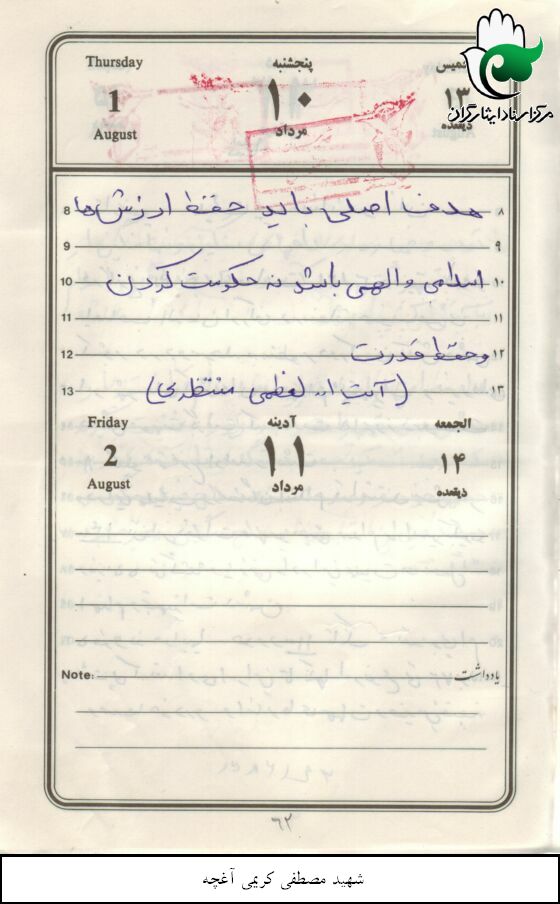 Thursday پنجشنبه خمیس
1 ۱۰ ۱۳
August مرداد ذیقعده
مرکز اسناد ایثارگران
8 هدف اصلی باید حفظ ارزش ها ۸
9 ۹
10 اسلامی و الهی باشد نه حکومت کردن ۱۰
11 ۱۱
12 و حفظ قدرت ۱۲
13 (آیت الله العظمی منتظری) ۱۳
Friday آدینه الجمعه
2 ۱۱ ۱۴
August مرداد ذیقعده
Note: یادداشت
۶۲
شهید مصطفی کریمی آغچه